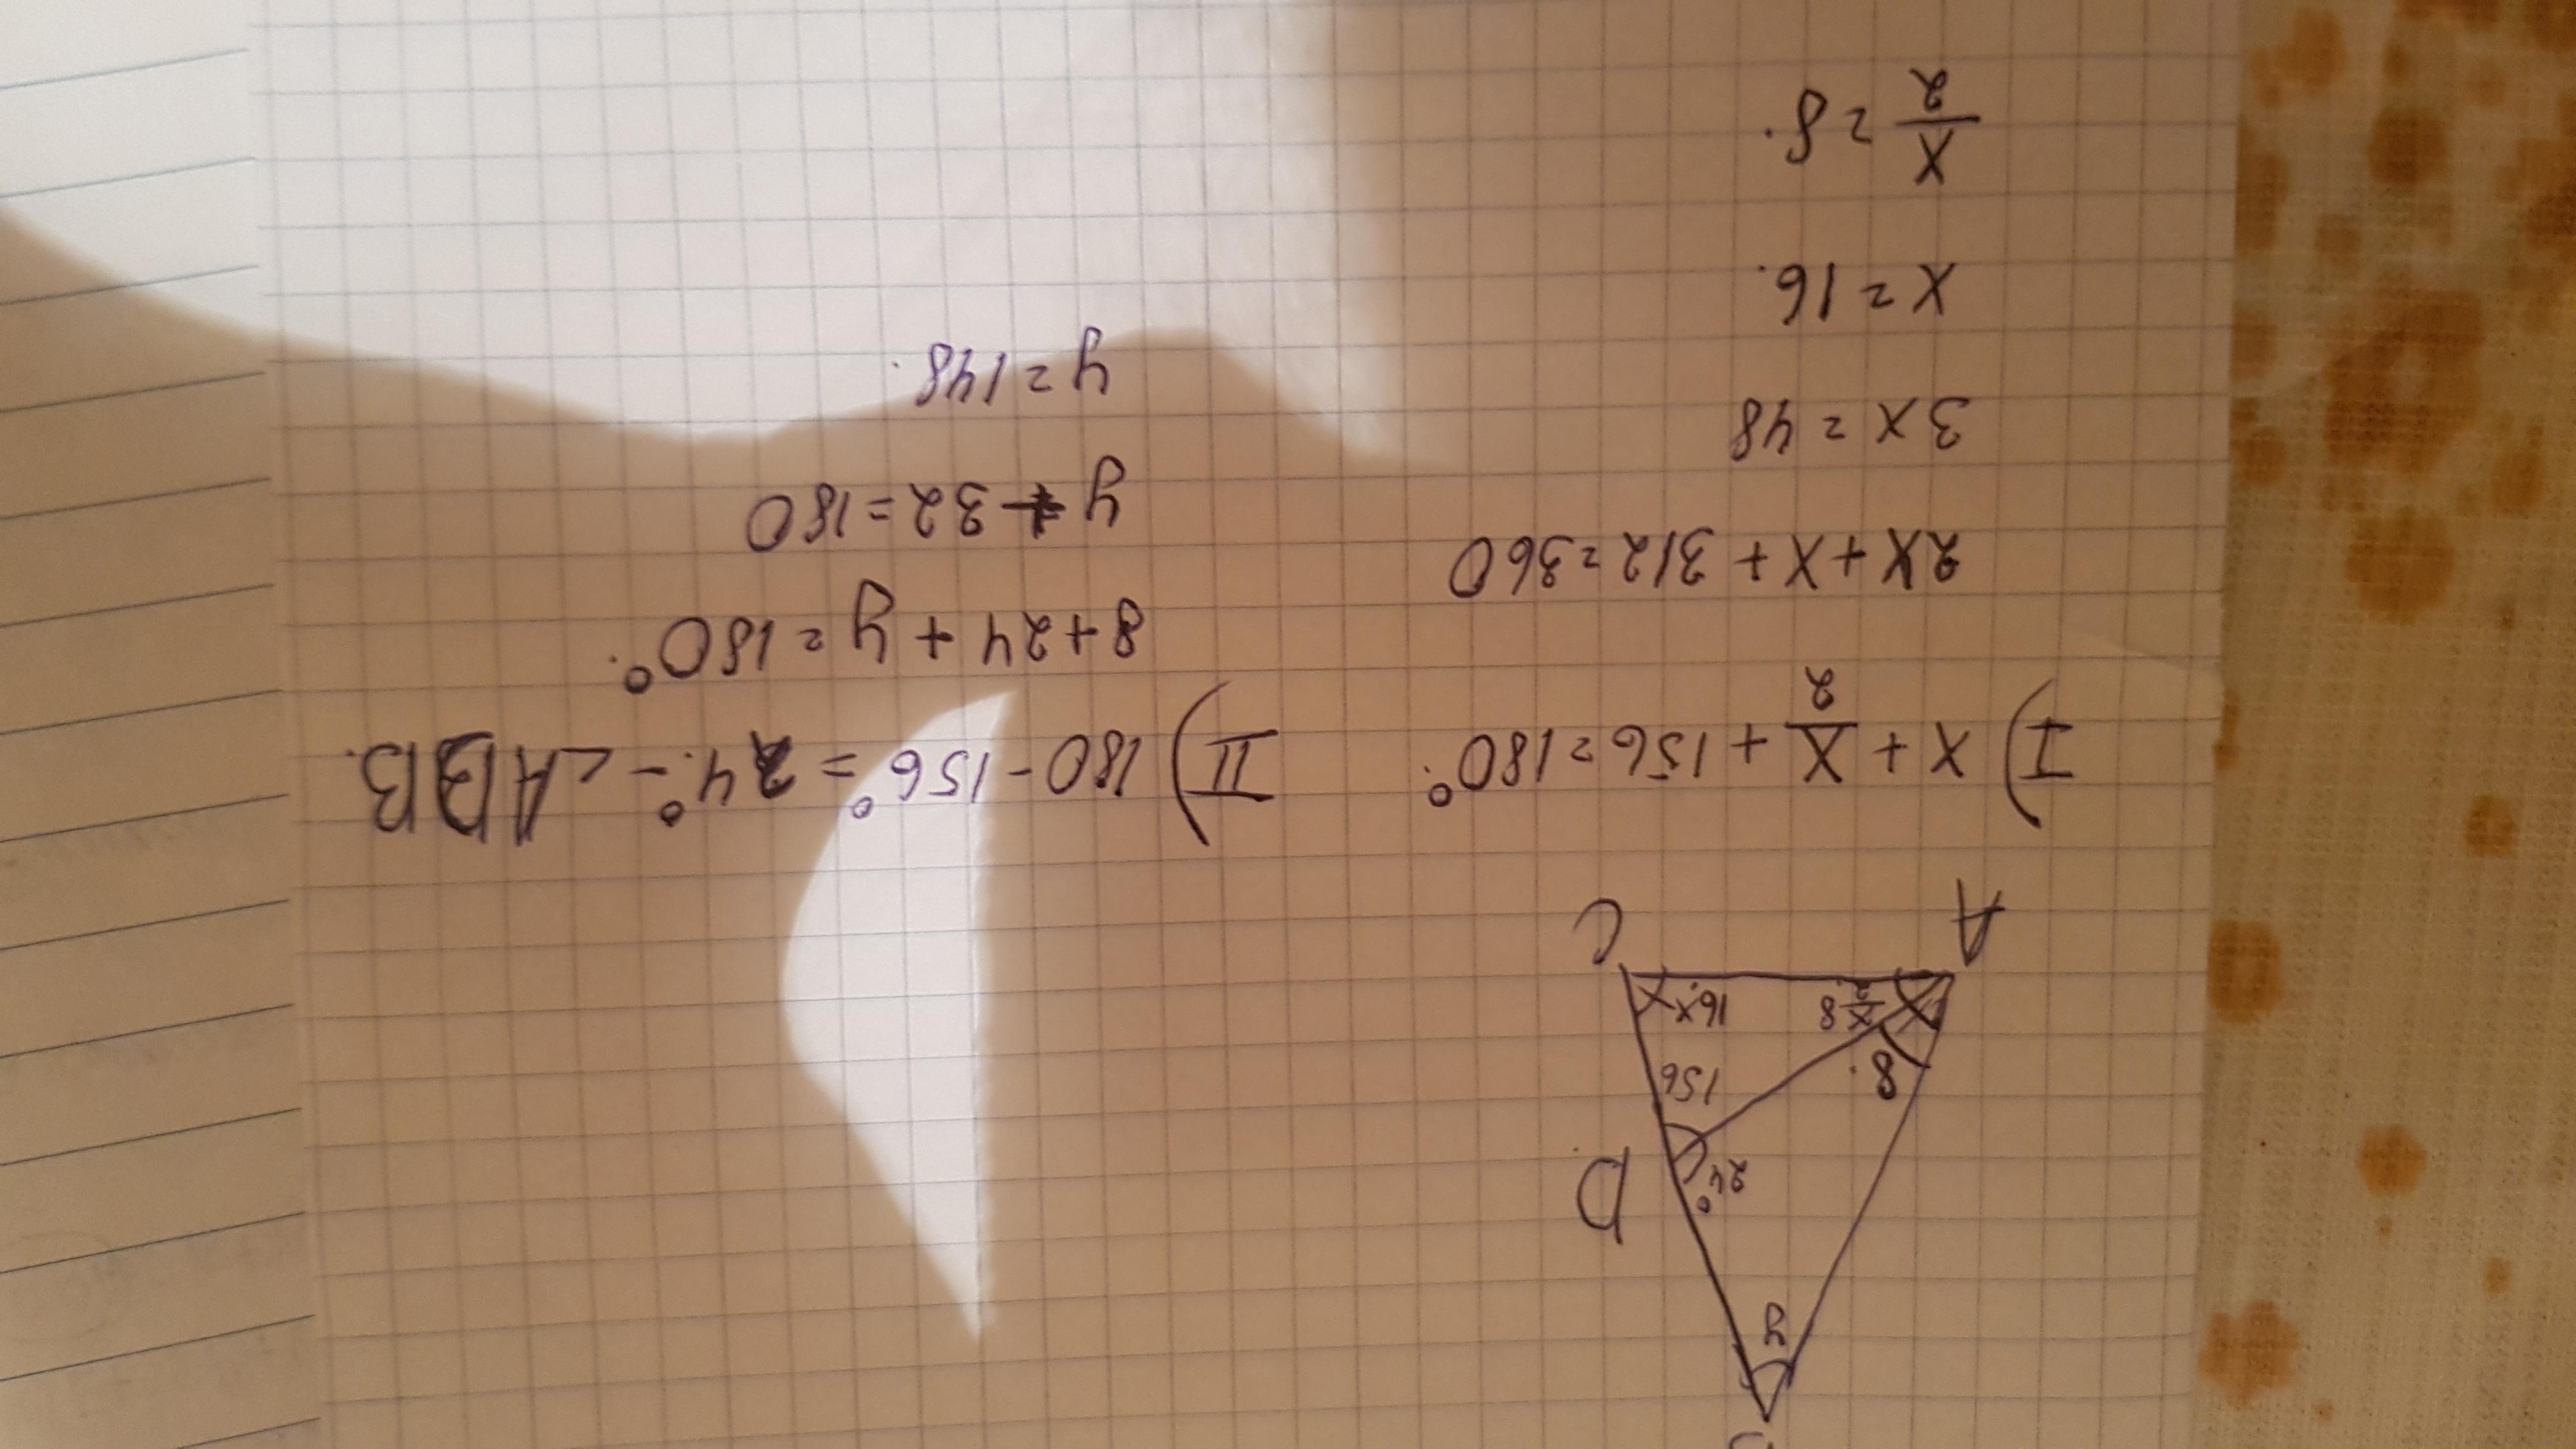 y
24°
D
156
8
x/2 8
16 x
A
C
I) x + x/2 + 156 = 180°.
2x + x + 312 = 360
3x = 48
x = 16.
x/2 = 8.
II) 180 - 156° = 24°. - ∠ADB.
8 + 24 + y = 180°.
y + 32 = 180
y = 148.